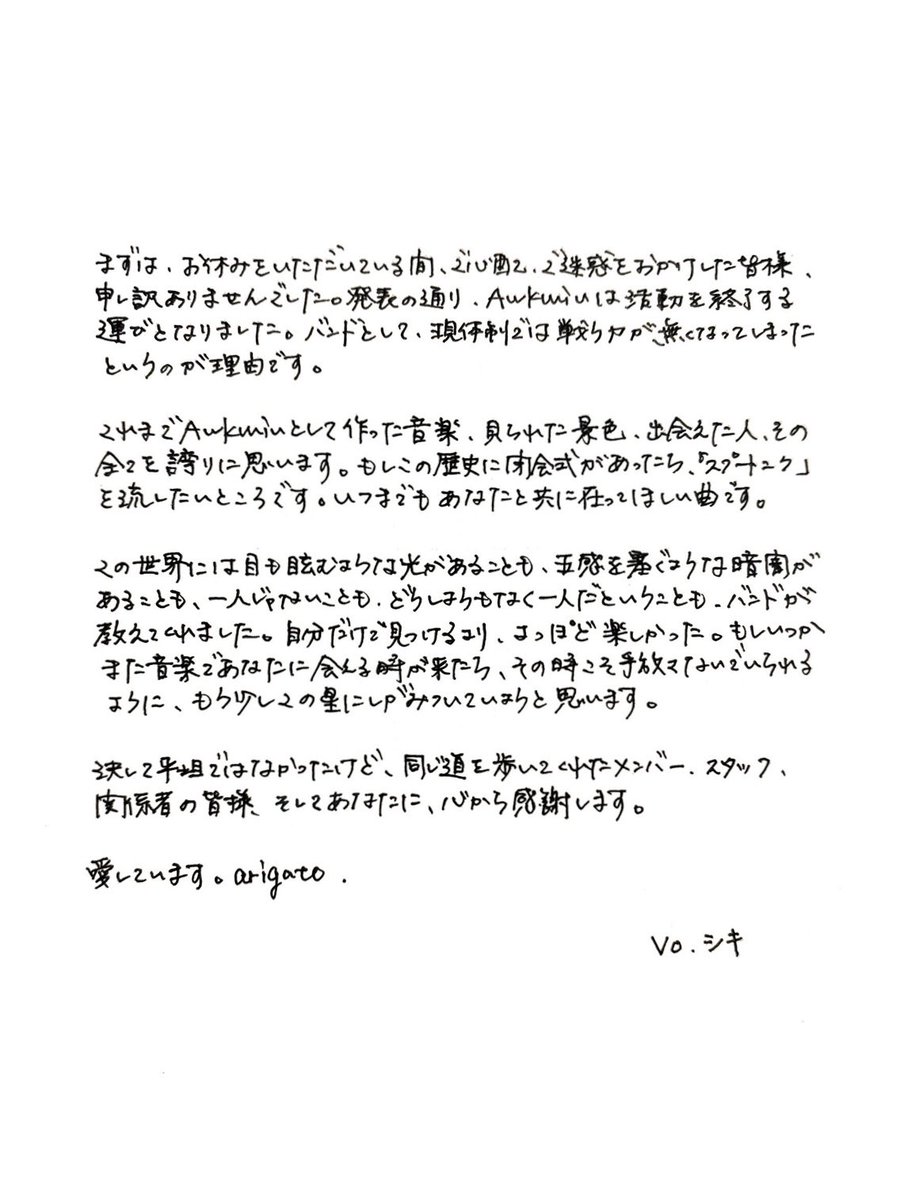 まずは、お休みをいただいている間、ご心配、ご迷惑をおかけした皆様、
申し訳ありませんでした。発表の通り、Awkmiuは活動を終了する
運びとなりました。バンドとして、現体制では戦う力が無くなってしまった
というのが理由です。
これまでAwkmiuとして作った音楽、見られた景色、出会えた人、その
全てを誇りに思います。もしこの歴史に閉会式があったら、『スプートニク』
を流したいところです。いつまでもあなたと共に在ってほしい曲です。
この世界には目も眩むような光があることも、五感を塞ぐような暗闇が
あることも、一人じゃないことも、どうしようもなく一人だということも、バンドが
教えてくれました。自分だけで見つけるより、よっぽど楽しかった。もしいつか
また音楽であなたに会える時が来たら、その時こそ手放さないでいられる
ように、もう少しこの星にしがみついていようと思います。
決して平坦ではなかったけど、同じ道を歩いてくれたメンバー、スタッフ、
関係者の皆様、そしてあなたに、心から感謝します。
愛しています。arigato.
Vo.シキ